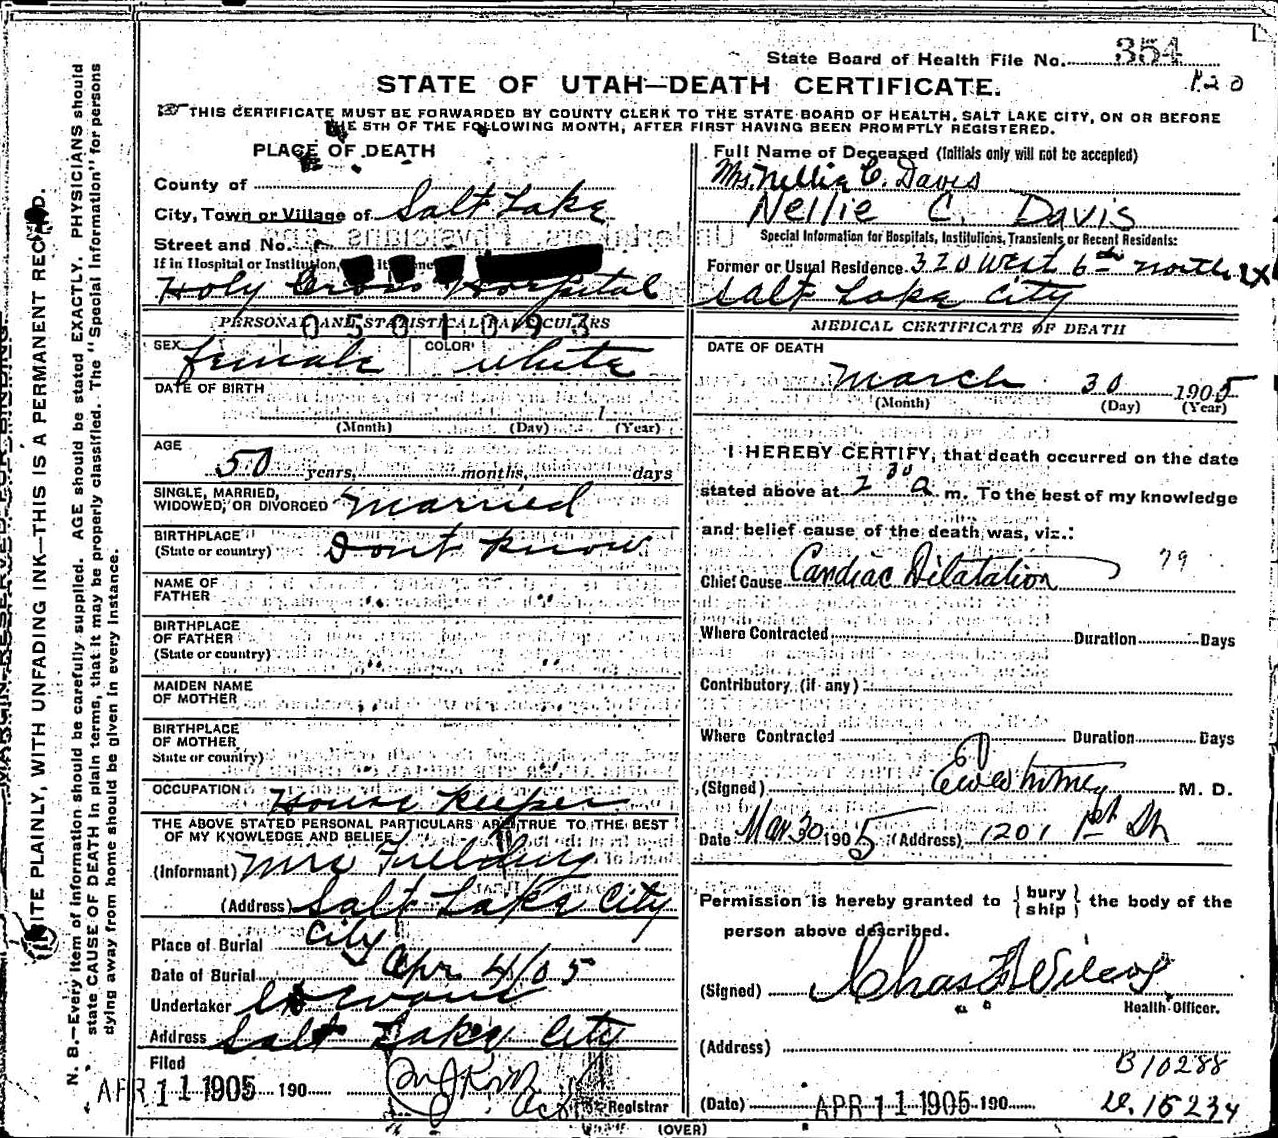 State Board of Health File No. 354
120
STATE OF UTAH—DEATH CERTIFICATE.
THIS CERTIFICATE MUST BE FORWARDED BY COUNTY CLERK TO THE STATE BOARD OF HEALTH, SALT LAKE CITY, ON OR BEFORE
THE 5TH OF THE FOLLOWING MONTH, AFTER FIRST HAVING BEEN PROMPTLY REGISTERED.
PLACE OF DEATH
County of
City, Town or Village of Salt Lake
Street and No.
If in Hospital or Institution,
Holy Cross Hospital
PERSONAL AND STATISTICAL PARTICULARS
0501093
SEX female COLOR white
DATE OF BIRTH
1
(Month) (Day) (Year)
AGE
50 years, months, days
SINGLE, MARRIED,
WIDOWED, OR DIVORCED Married
BIRTHPLACE
(State or country) Dont Know
NAME OF
FATHER " "
BIRTHPLACE
OF FATHER
(State or country) " "
MAIDEN NAME
OF MOTHER
BIRTHPLACE
OF MOTHER
State or country)
OCCUPATION House Keeper
THE ABOVE STATED PERSONAL PARTICULARS ARE TRUE TO THE BEST
OF MY KNOWLEDGE AND BELIEF
(Informant) Mrs
(Address) Salt Lake City
Place of Burial City
Date of Burial Apr 4/05
Undertaker
Address Salt Lake City
Filed
APR 11 1905 190
Registrar
Full Name of Deceased (Initials only will not be accepted)
Mrs. Nellie C. Davis
Nellie C. Davis
Special Information for Hospitals, Institutions, Transients, or Recent Residents:
Former or Usual Residence 320 West 6th North
Salt Lake City
MEDICAL CERTIFICATE OF DEATH
DATE OF DEATH
March 30 1905
(Month) (Day) (Year)
I HEREBY CERTIFY, that death occurred on the date
stated above at 2 30 a m. To the best of my knowledge
and belief cause of the death was, viz.:
Chief Cause Cardiac Dilatation 79
Where Contracted Duration Days
Contributory (if any)
Where Contracted Duration Days
(Signed) M. D.
Date Mar 30 1905 (Address) 1201 1st
Permission is hereby granted to { bury ship } the body of the
person above described.
(Signed) Chas F Wilcox
Health Officer.
(Address)
B10288
(Date) APR 11 1905 190
D. 15234
(OVER)
WRITE PLAINLY, WITH UNFADING INK—THIS IS A PERMANENT RECORD.
N. B.—Every item of information should be carefully supplied. AGE should be stated EXACTLY. PHYSICIANS should
state CAUSE OF DEATH in plain terms, that it may be properly classified. The "Special Information" for persons
dying away from home should be given in every instance.